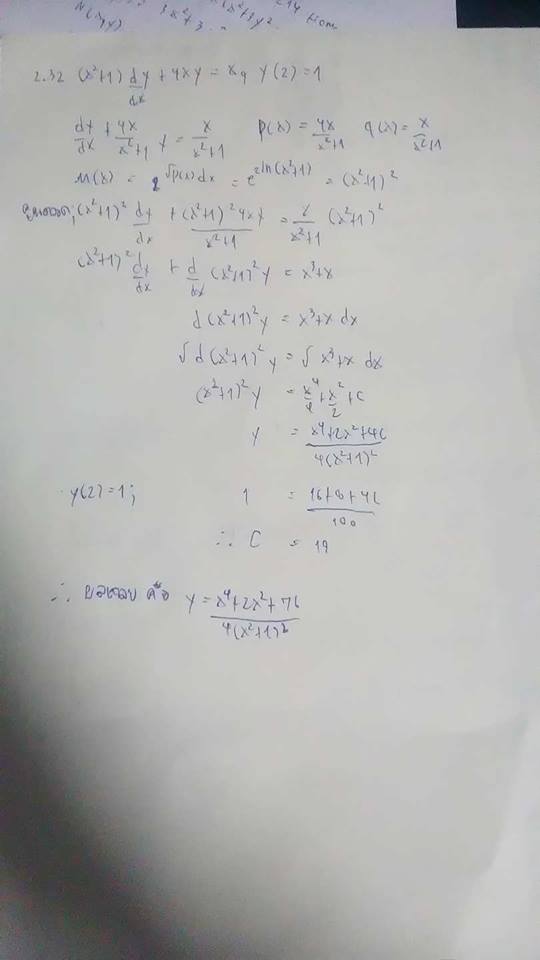 N(x,y) 3x²+3 x²+3y²
2.32 (x²+1) dy/dx + 4xy = x, y(2) = 1
dy/dx + 4x/x²+1 y = x/x²+1 p(x) = 4x/x²+1 q(x) = x/x²+1
u(x) = e^∫p(x)dx = e^2ln(x²+1) = (x²+1)²
(x²+1)² dy/dx + (x²+1)² 4xy/x²+1 = x/x²+1 (x²+1)²
(x²+1)² dy/dx + d/dx (x²+1)² y = x³+x
d(x²+1)² y = x³+x dx
∫ d(x²+1)² y = ∫ x³+x dx
(x²+1)² y = x⁴/4 + x²/2 + c
y = x⁴+2x²+4c/4(x²+1)²
y(2)=1; 1 = 16+8+4c/100
∴ C = 19
∴ ผลตอบ คือ y = x⁴+2x²+76/4(x²+1)²